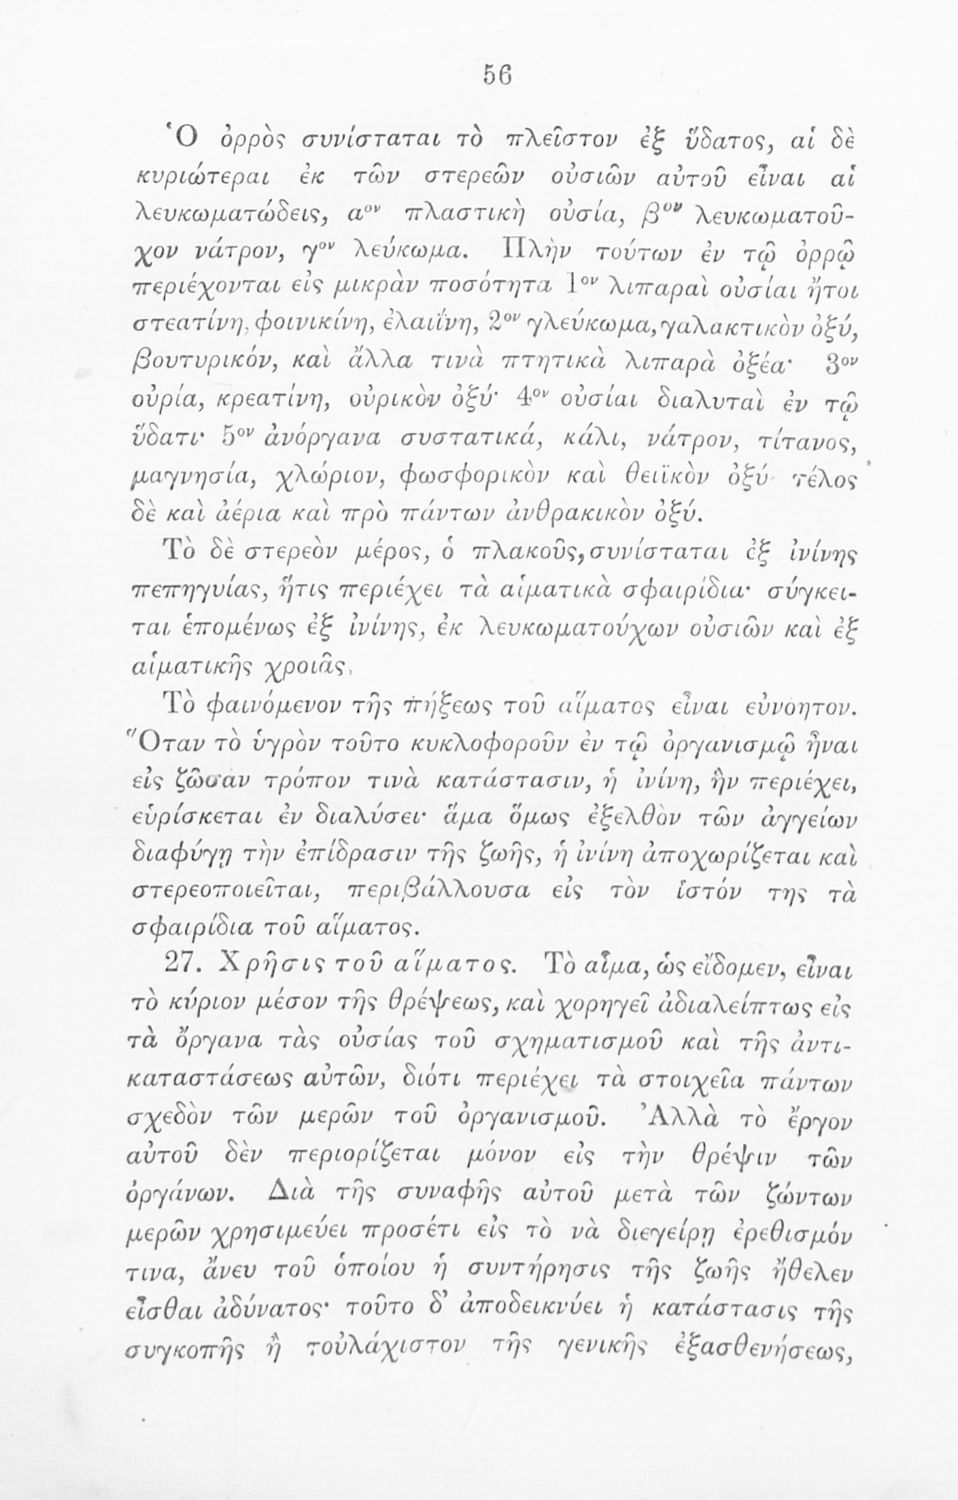 56
Ὁ ὀρρὸς συνίσταται τὸ πλεῖστον ἐξ ὕδατος, αἱ δὲ
κυριώτεραι ἐκ τῶν στερεῶν οὐσιῶν αὐτοῦ εἶναι αἱ
λευκωματώδεις, αον πλαστικὴ οὐσία, βον λευκωματοῦ-
χον νάτρον, γον λεύκωμα. Πλὴν τούτων ἐν τῷ ὀρρῷ
περιέχονται εἰς μικρὰν ποσότητα 1ον λιπαραὶ οὐσίαι ἤτοι
στεατίνη, φοινικίνη, ἐλαιΐνη, 2ον γλεύκωμα, γαλακτικὸν ὀξύ,
βουτυρικόν, καὶ ἄλλα τινὰ πτητικὰ λιπαρὰ ὀξέα· 3ον
οὐρία, κρεατίνη, οὐρικὸν ὀξύ· 4ον οὐσίαι διαλυταὶ ἐν τῷ
ὕδατι· 5ον ἀνόργανα συστατικά, κάλι, νάτρον, τίτανος,
μαγνησία, χλώριον, φωσφορικὸν καὶ θειϊκὸν ὀξύ· τέλος
δὲ καὶ ἀέρια καὶ πρὸ πάντων ἀνθρακικὸν ὀξύ.
Τὸ δὲ στερεὸν μέρος, ὁ πλακοῦς, συνίσταται ἐξ ἰνίνης
πεπηγυίας, ἥτις περιέχει τὰ αἱματικὰ σφαιρίδια· σύγκει-
ται ἑπομένως ἐξ ἰνίνης, ἐκ λευκωματούχων οὐσιῶν καὶ ἐξ
αἱματικῆς χροιᾶς.
Τὸ φαινόμενον τῆς πήξεως τοῦ αἵματος εἶναι εὐνοητον.
Ὅταν τὸ ὑγρὸν τοῦτο κυκλοφοροῦν ἐν τῷ ὀργανισμῷ ἦναι
εἰς ζῶσαν τρόπον τινὰ κατάστασιν, ἡ ἰνίνη, ἣν περιέχει,
εὑρίσκεται ἐν διαλύσει· ἅμα ὅμως ἐξελθὸν τῶν ἀγγείων
διαφύγῃ τὴν ἐπίδρασιν τῆς ζωῆς, ἡ ἰνίνη ἀποχωρίζεται καὶ
στερεοποιεῖται, περιβάλλουσα εἰς τὸν ἱστόν της τὰ
σφαιρίδια τοῦ αἵματος.
27. Χρῆσις τοῦ αἵματος. Τὸ αἷμα, ὡς εἴδομεν, εἶναι
τὸ κύριον μέσον τῆς θρέψεως, καὶ χορηγεῖ ἀδιαλείπτως εἰς
τὰ ὄργανα τὰς οὐσίας τοῦ σχηματισμοῦ καὶ τῆς ἀντι-
καταστάσεως αὐτῶν, διότι περιέχει τὰ στοιχεῖα πάντων
σχεδὸν τῶν μερῶν τοῦ ὀργανισμοῦ. Ἀλλὰ τὸ ἔργον
αὐτοῦ δὲν περιορίζεται μόνον εἰς τὴν θρέψιν τῶν
ὀργάνων. Διὰ τῆς συναφῆς αὐτοῦ μετὰ τῶν ζώντων
μερῶν χρησιμεύει προσέτι εἰς τὸ νὰ διεγείρῃ ἐρεθισμόν
τινα, ἄνευ τοῦ ὁποίου ἡ συντήρησις τῆς ζωῆς ἤθελεν
εἶσθαι ἀδύνατος· τοῦτο δ᾽ ἀποδεικνύει ἡ κατάστασις τῆς
συγκοπῆς ἢ τοὐλάχιστον τῆς γενικῆς ἐξασθενήσεως,